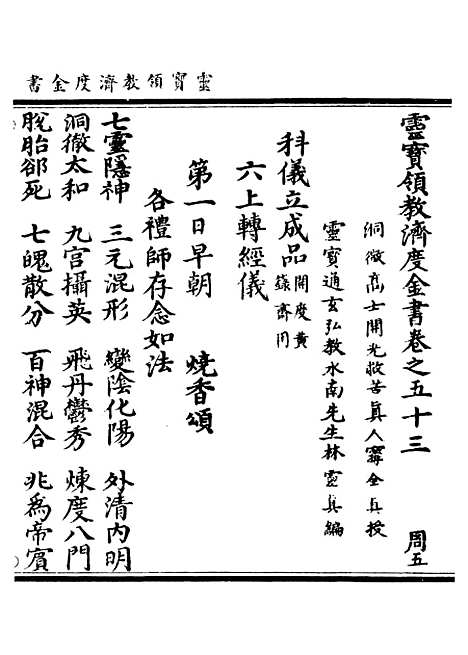 靈寶領教濟度金書
靈寶領教濟度金書卷之五十三 周五
洞微高士開光救苦眞人甯全眞授
靈寶通玄弘教水南先生林靈眞編
科儀立成品 開度黃籙齋用
六上轉經儀
第一日早朝 燒香頌
各禮師存念如法
七靈隱神 三元混形 變陰化陽 外清內明
洞徹太和 九宮攝英 飛丹鬱秀 煉度八門
脫胎郤死 七魄散分 百神混合 兆爲帝賓